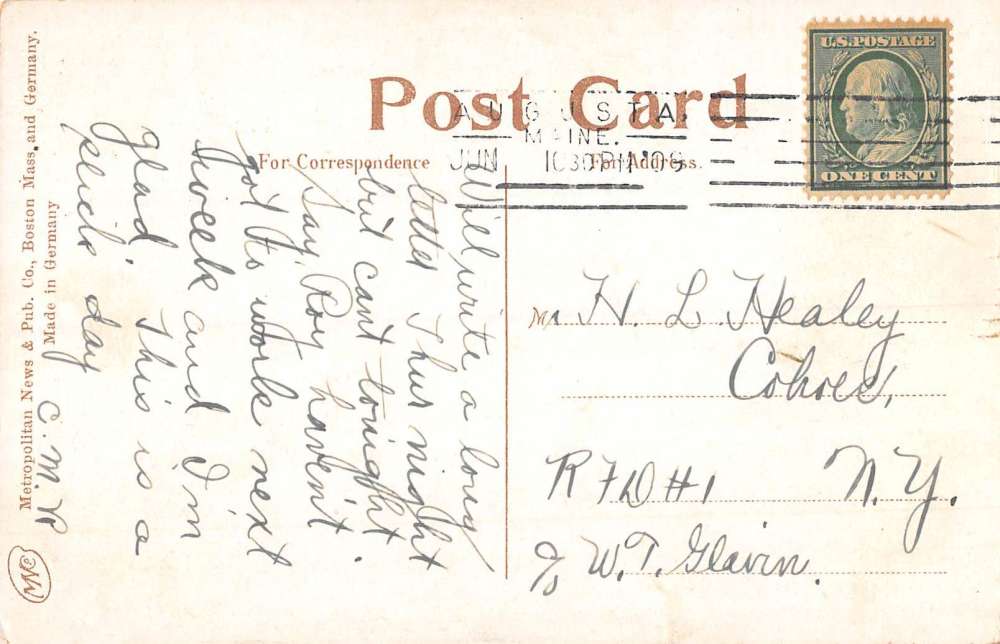 Post Card
For Correspondence
For Address.
U.S. POSTAGE
ONE CENT
AUGUSTA
MAINE.
JUN 10 30
Will write a long
letter Thur night
but cant tonight.
Say, Roy haven't
got to work next
week and I'm
glad. This is a
day
C. M. H
Mr H. L. Healey
Cohoes,
R F D #1 N. Y.
c/o W. T. Glavin.
Metropolitan News & Pub. Co., Boston Mass. and Germany.
Made in Germany